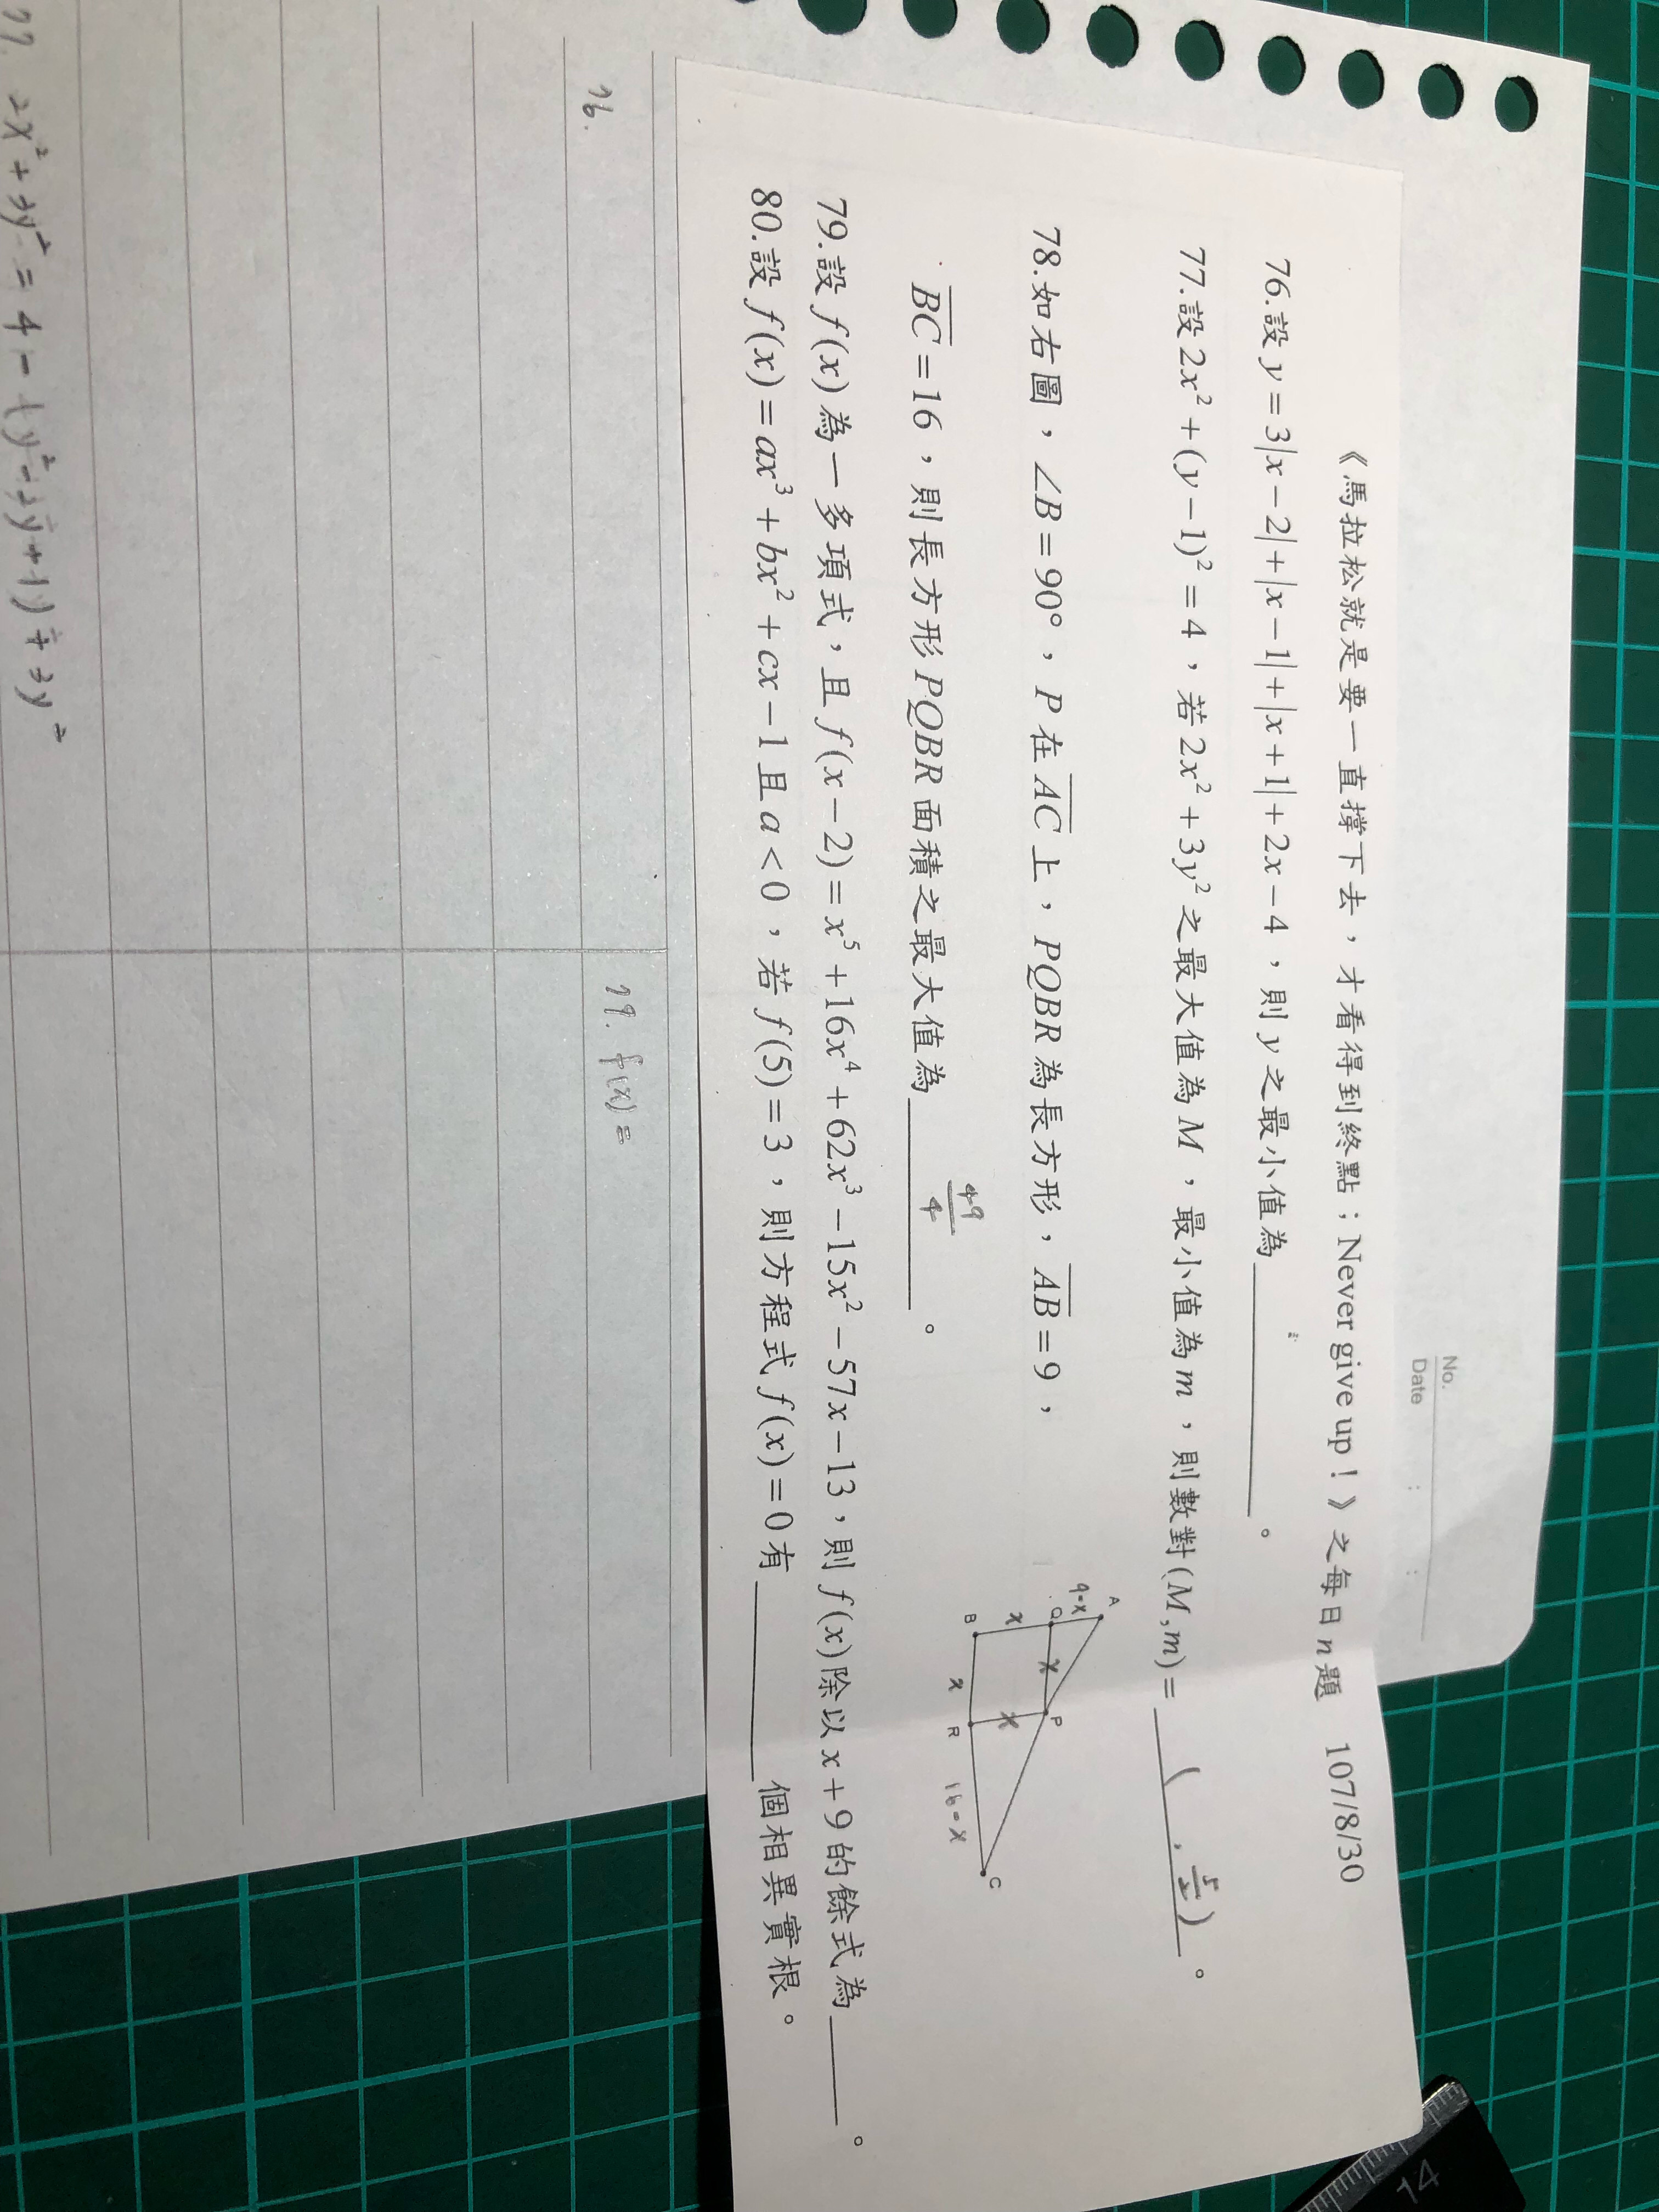 No.
Date : :
《馬拉松就是要一直撐下去，才看得到終點；Never give up！》之每日n題 107/8/30
76.設 y=3|x−2|+|x−1|+|x+1|+2x−4，則 y 之最小值為________。
77.設 2x²+(y−1)²=4，若 2x²+3y² 之最大值為 M，最小值為 m，則數對(M,m)= ( , 5/2 ) 。
78.如右圖，∠B=90°，P 在 AC 上，PQBR 為長方形，AB=9，
BC=16，則長方形 PQBR 面積之最大值為 49/4 。
A
9-x
Q
x
P
x
x
B
x
R
16-x
C
79.設 f(x) 為一多項式，且 f(x−2)=x⁵+16x⁴+62x³−15x²−57x−13，則 f(x) 除以 x+9 的餘式為________。
80.設 f(x)=ax³+bx²+cx−1 且 a<0，若 f(5)=3，則方程式 f(x)=0 有________個相異實根。
76.
79. f(x) =
77. 2x²+3y² = 4 - (y²-2y+1) + 3y²
14